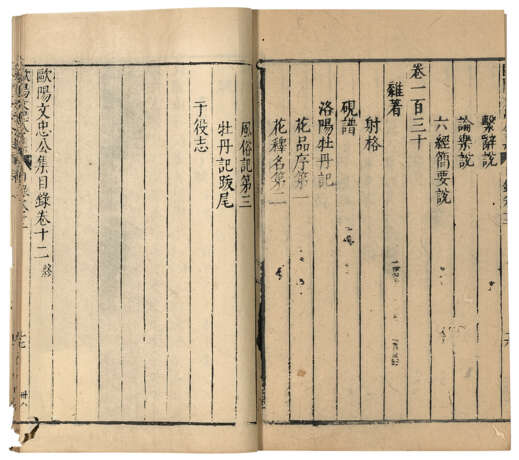 繫辭說
論樂說
六經簡要說
卷一百三十
雜著
射格
硯譜
洛陽牡丹記
花品序第一
花釋名第二
風俗記第三
牡丹記跋尾
于役志
歐陽文忠公集目錄卷十二 終